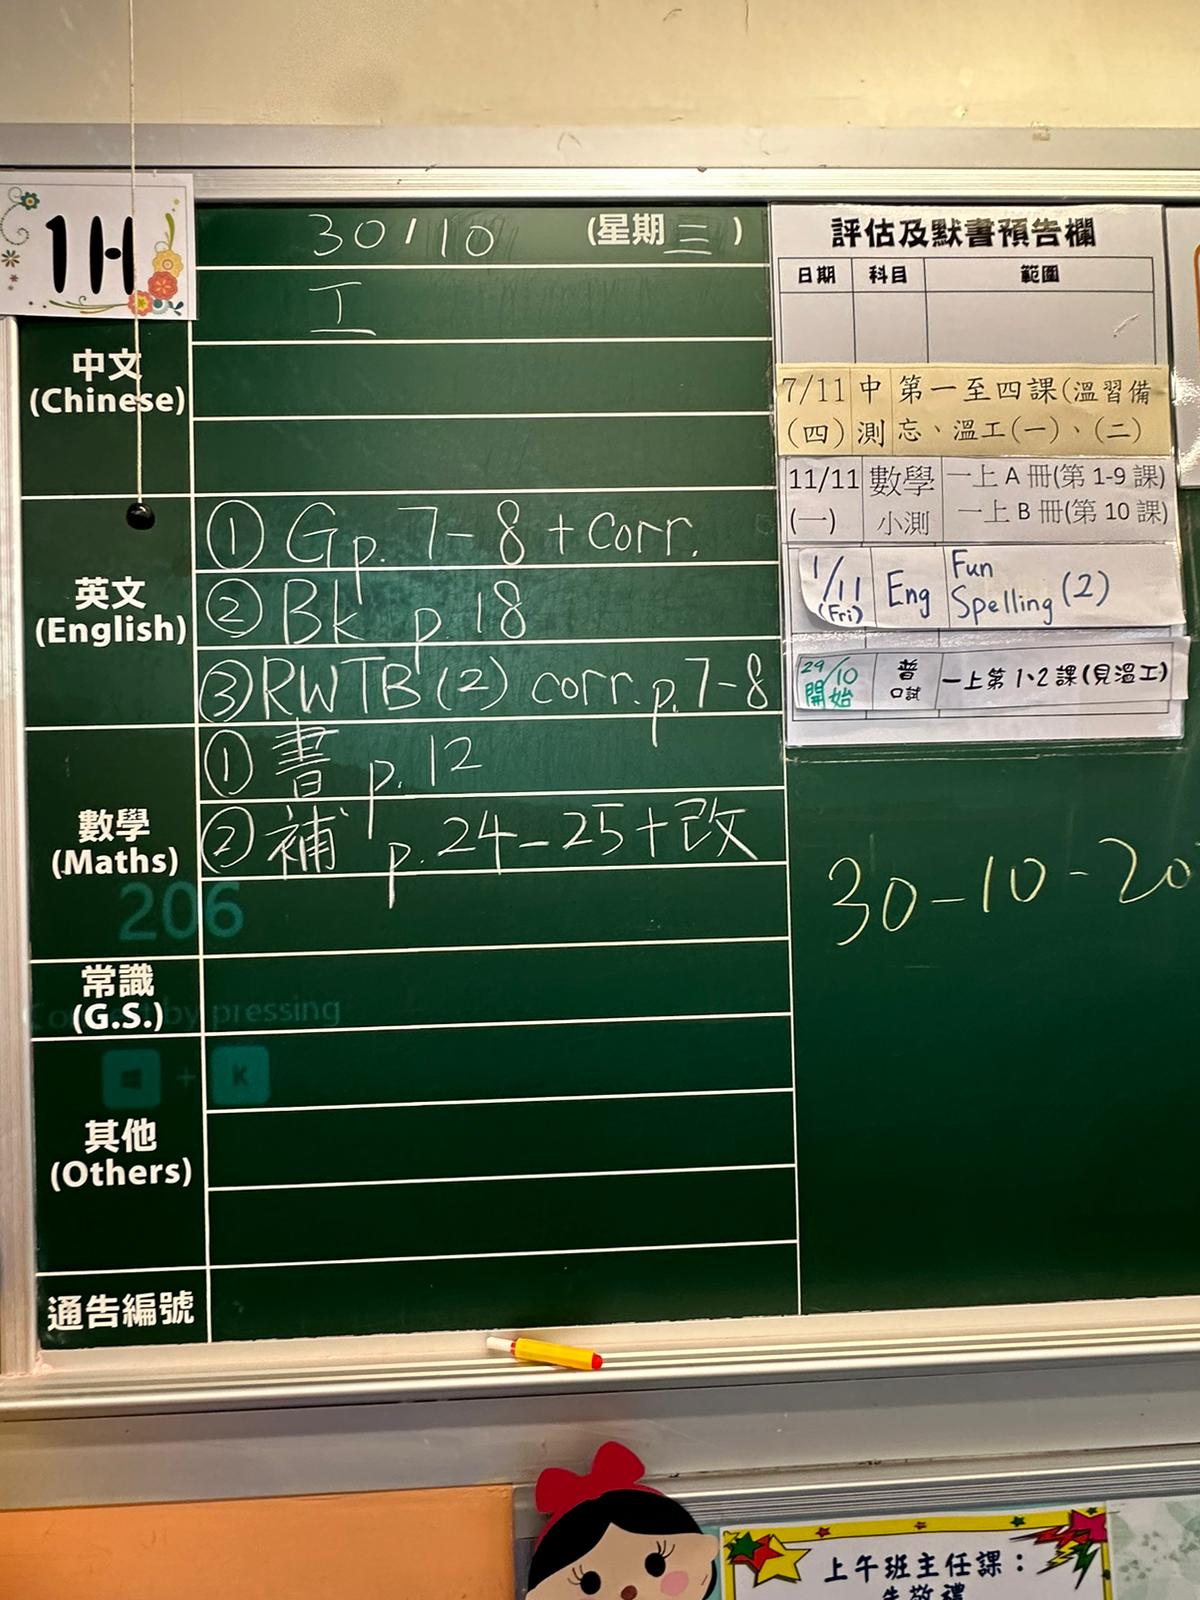 1H
30/10 (星期三)
工
中文
(Chinese)
英文
(English)
① G p. 7-8 + corr.
② Bk p. 18
③ RWTB (2) corr. p. 7-8
數學
(Maths)
① 書 p. 12
② 補 p. 24-25+改
206
常識
(G.S.)
by pressing
+ K
其他
(Others)
通告編號
評估及默書預告欄
日期 科目 範圍
7/11 中 第一至四課(溫習備
(四) 測 忘、溫工(一)、(二)
11/11 數學 一上 A 冊(第 1-9 課)
(一) 小測 一上 B 冊(第 10 課)
1/11 Eng Fun
(Fri) Spelling (2)
29/10 普 一上第1、2課(見溫工)
開始 口試
30-10-20
上午班主任課：
先敬禮